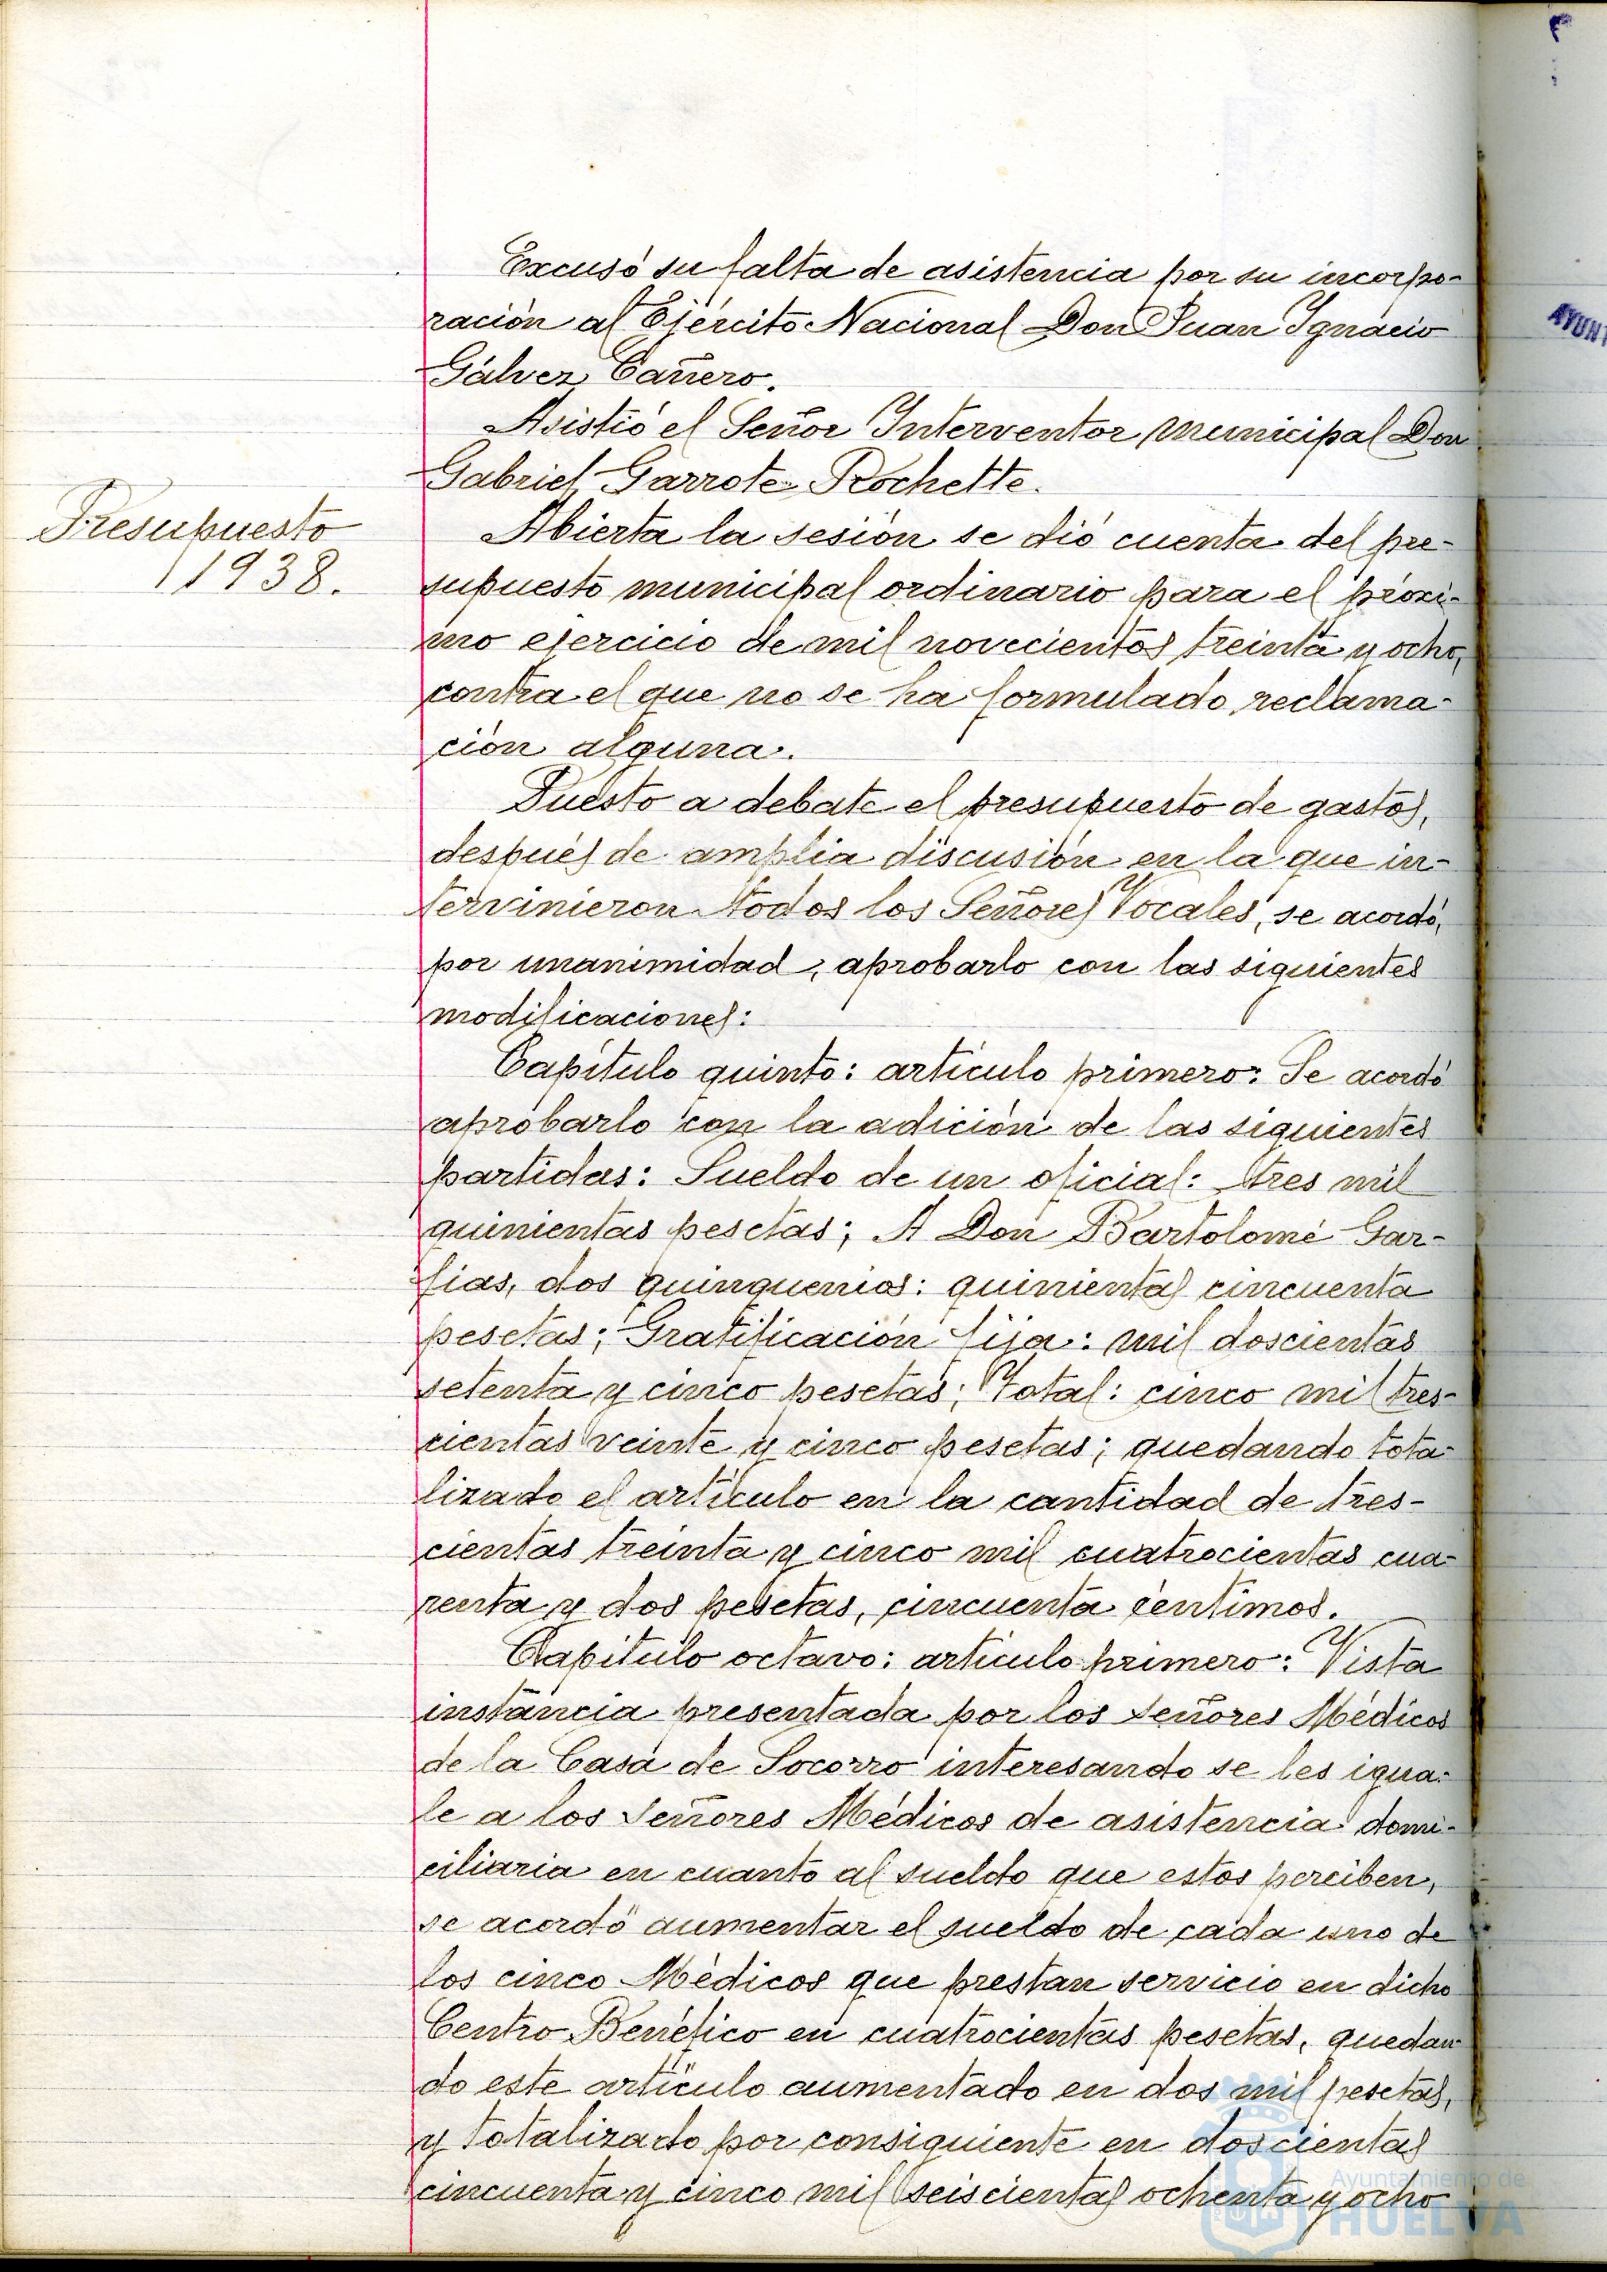 Excusó su falta de asistencia por su incorpo-
ración al Ejército Nacional Don Juan Ignacio
Gálvez Cañero.
Asistió el Señor Interventor municipal Don
Gabriel Garrote Rochette.
Presupuesto
1938.
Abierta la sesión se dió cuenta del pre-
supuesto municipal ordinario para el próxi-
mo ejercicio de mil novecientos treinta y ocho,
contra el que no se ha formulado reclama-
ción alguna.
Puesto a debate el presupuesto de gastos,
después de amplia discusión en la que in-
tervinieron todos los Señores Vocales, se acordó,
por unanimidad, aprobarlo con las siguientes
modificaciones:
Capítulo quinto: artículo primero: Se acordó
aprobarlo con la adición de las siguientes
partidas: Sueldo de un oficial: tres mil
quinientas pesetas; A Don Bartolomé Gar-
fias, dos quinquenios: quinientas cincuenta
pesetas; Gratificación fija: mil doscientas
setenta y cinco pesetas; Total: cinco mil tres-
cientas veinte y cinco pesetas; quedando tota-
lizado el artículo en la cantidad de tres-
cientas treinta y cinco mil cuatrocientas cua-
renta y dos pesetas, cincuenta céntimos.
Capítulo octavo: artículo primero: Vista
instancia presentada por los señores Médicos
de la Casa de Socorro interesando se les igua-
le a los señores Médicos de asistencia domi-
ciliaria en cuanto al sueldo que estos perciben,
se acordó aumentar el sueldo de cada uno de
los cinco Médicos que prestan servicio en dicho
Centro Benéfico en cuatrocientas pesetas, quedan-
do este artículo aumentado en dos mil pesetas,
y totalizado por consiguiente en doscientas
cincuenta y cinco mil seiscientas ochenta y ocho
Ayuntamiento de
HUELVA
AYUNT